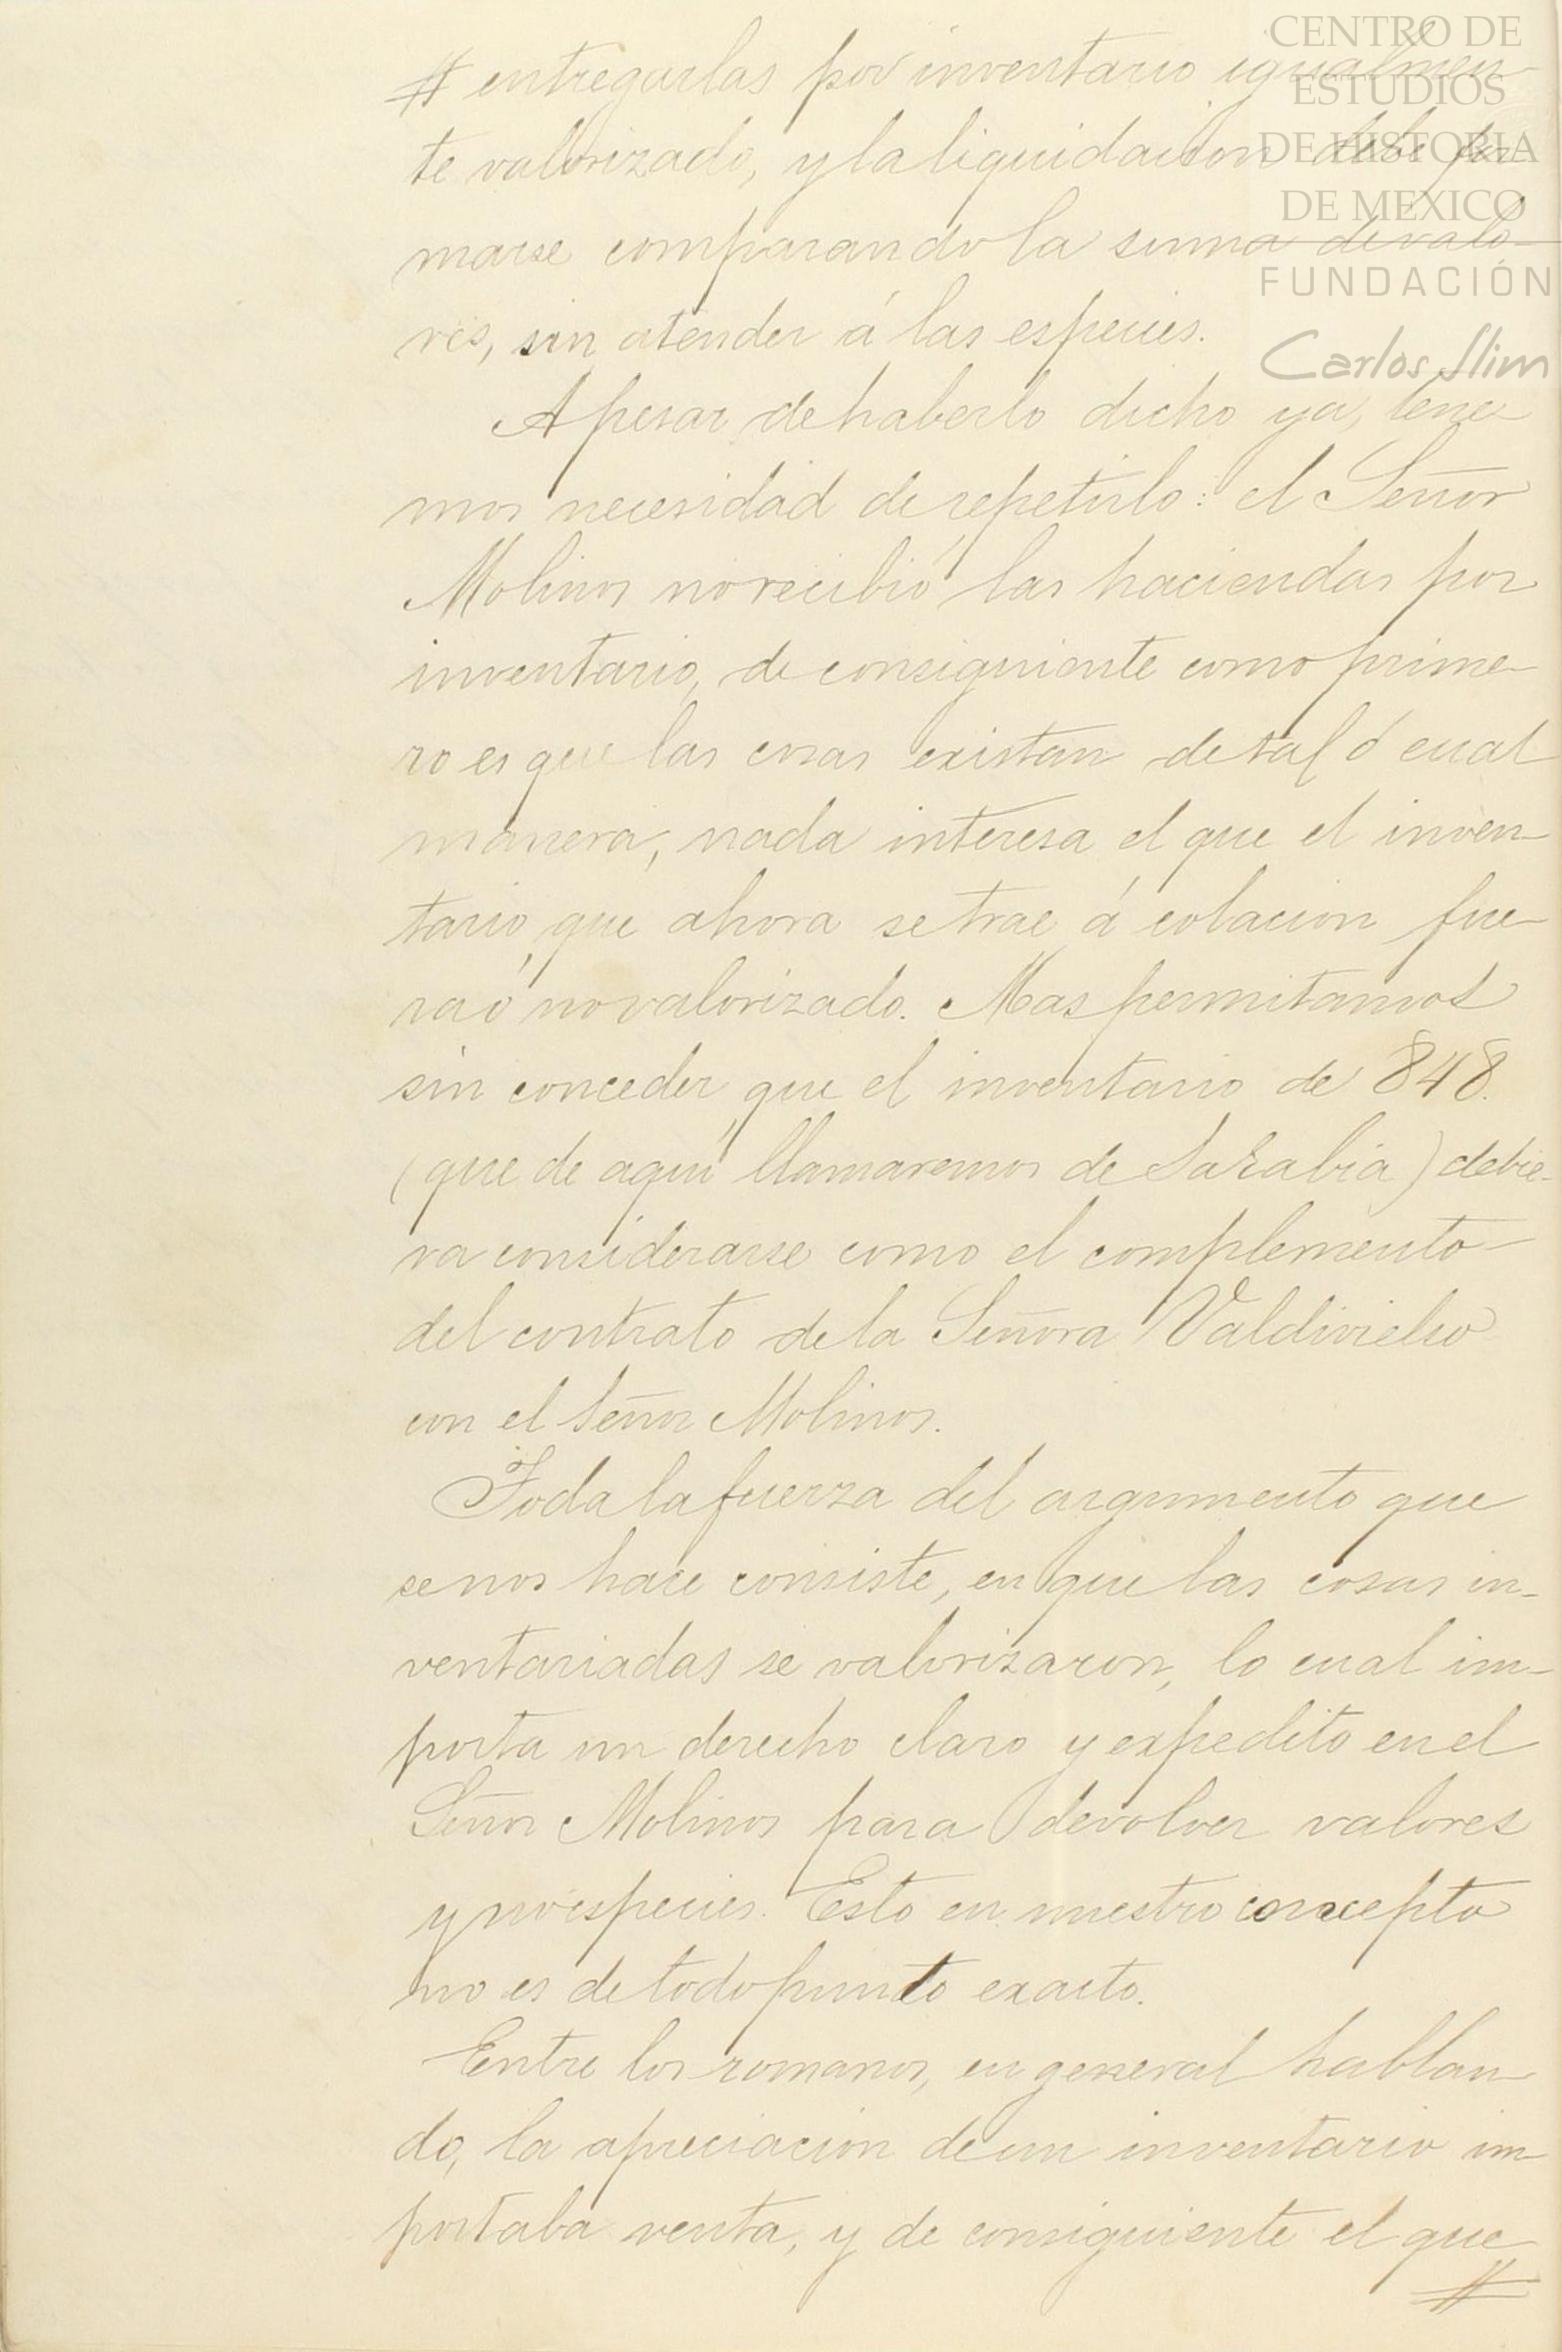 CENTRO DE
ESTUDIOS
DE HISTORIA
DE MEXICO
FUNDACIÓN
Carlos Slim
# entregarlas por inventario igualmen-
te valorizado, y la liquidacion debe for-
marse comparando la suma de valo-
res, sin atender á las especies.
A pesar de haberlo dicho ya, tene-
mos necesidad de repetirlo: el Señor
Molinos no recibió las haciendas por
inventario, de consiguiente como prime-
ro es que las cosas existan de tal ó cual
manera, nada interesa el que el inven-
tario, que ahora se trae á colacion fue-
ra ó no valorizado. Mas permitamos
sin conceder, que el inventario de 848.
(que de aquí llamaremos de Sarabia) debie-
ra considerarse como el complemento
del contrato de la Señora Valdivielso
con el Señor Molinos.
Toda la fuerza del argumento que
se nos hace consiste, en que las cosas in-
ventariadas se valorizaron, lo cual im-
porta un derecho claro y expedito en el
Señor Molinos para devolver valores
y no especies. Esto en nuestro concepto
no es de todo punto exacto.
Entre los romanos, en general hablan-
do, la apreciacion de un inventario im-
portaba venta, y de consiguiente el que
#